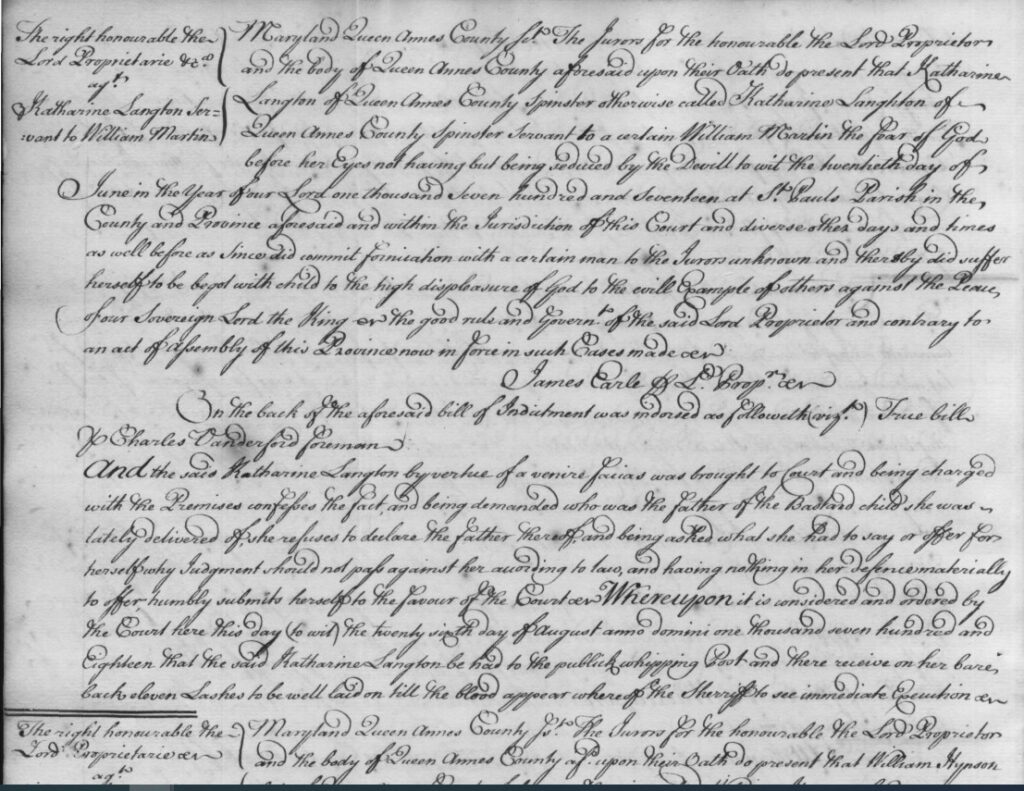 The right honourable the
Lord Proprietarie &ca
agt
Katharine Langton Ser=
vant to William Martin
Maryland Queen Annes County sst. The Jurors for the honourable the Lord Proprietor
and the body of Queen Annes County aforesaid upon their Oath do present that Katharine
Langton of Queen Annes County Spinster otherwise called Katharine Langhton of
Queen Annes County Spinster Servant to a certain William Martin the fear of God
before her Eyes not having but being seduced by the Devill to wit the twentieth day of
June in the Year of our Lord one thousand Seven hundred and Seventeen at St. Pauls Parish in the
County and Province aforesaid and within the Jurisdiction of this Court and diverse other days and times
as well before as Since did commit fornication with a certain man to the Jurors unknown and thereby did suffer
herself to be begot with child to the high displeasure of God to the evill Example of others against the Peace
of our Sovereign Lord the King &c the good rule and Governt. of the said Lord Proprietor and contrary to
an act of Assembly of this Province now in force in such Cases made &c
James Earle p Ld. Propr. &c
On the back of the aforesaid bill of Indictment was indorsed as followeth (vizt.) True bill
p Charles Vanderford foreman
And the said Katharine Langton by vertue of a venire facias was brought to Court and being charged
with the Premises confesses the fact, and being demanded who was the father of the Bastard child she was
lately delivered of, she refuses to declare the father thereof, and being asked what she had to say or offer for
herself why Judgment should not pass against her according to law, and having nothing in her defence materially
to offer humbly submits herself to the favour of the Court &c Whereupon it is considered and ordered by
the Court here this day (to wit) the twenty sixth day of August anno domini one thousand seven hundred and
Eighteen that the said Katharine Langton be had to the publick whipping Post and there receive on her bare
back eleven Lashes to be well laid on till the blood appear whereof the Sherriff to see immediate Execution &c
The right honourable the
Lord Proprietarie &c
agt
Maryland Queen Annes County sst. The Jurors for the honourable the Lord Proprietor
and the body of Queen Annes County afd. upon their Oath do present that William Hynson